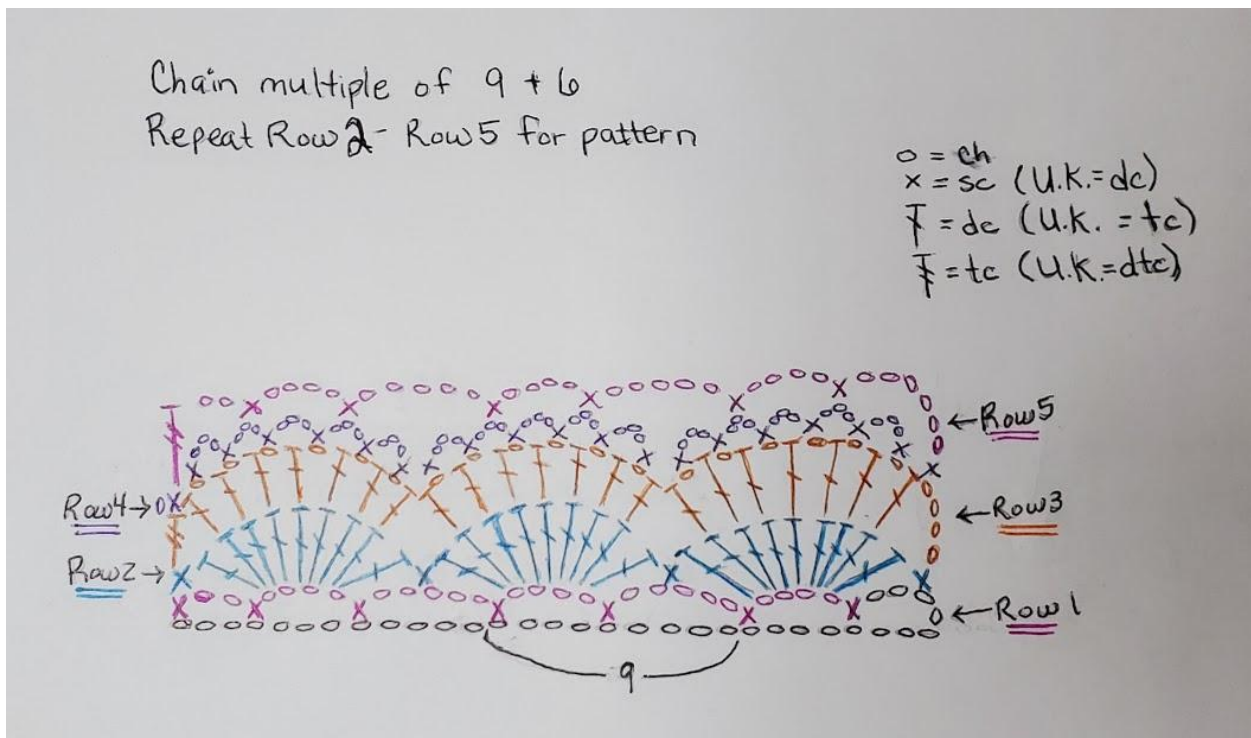 Chain multiple of 9 + 6
Repeat Row 2 - Row 5 for pattern
o = ch
x = sc (U.K.=dc)
= dc (U.K. = tc)
= tc (U.K.=dtc)
←Row5
Row4→
←Row3
Row2→
←Row 1
9